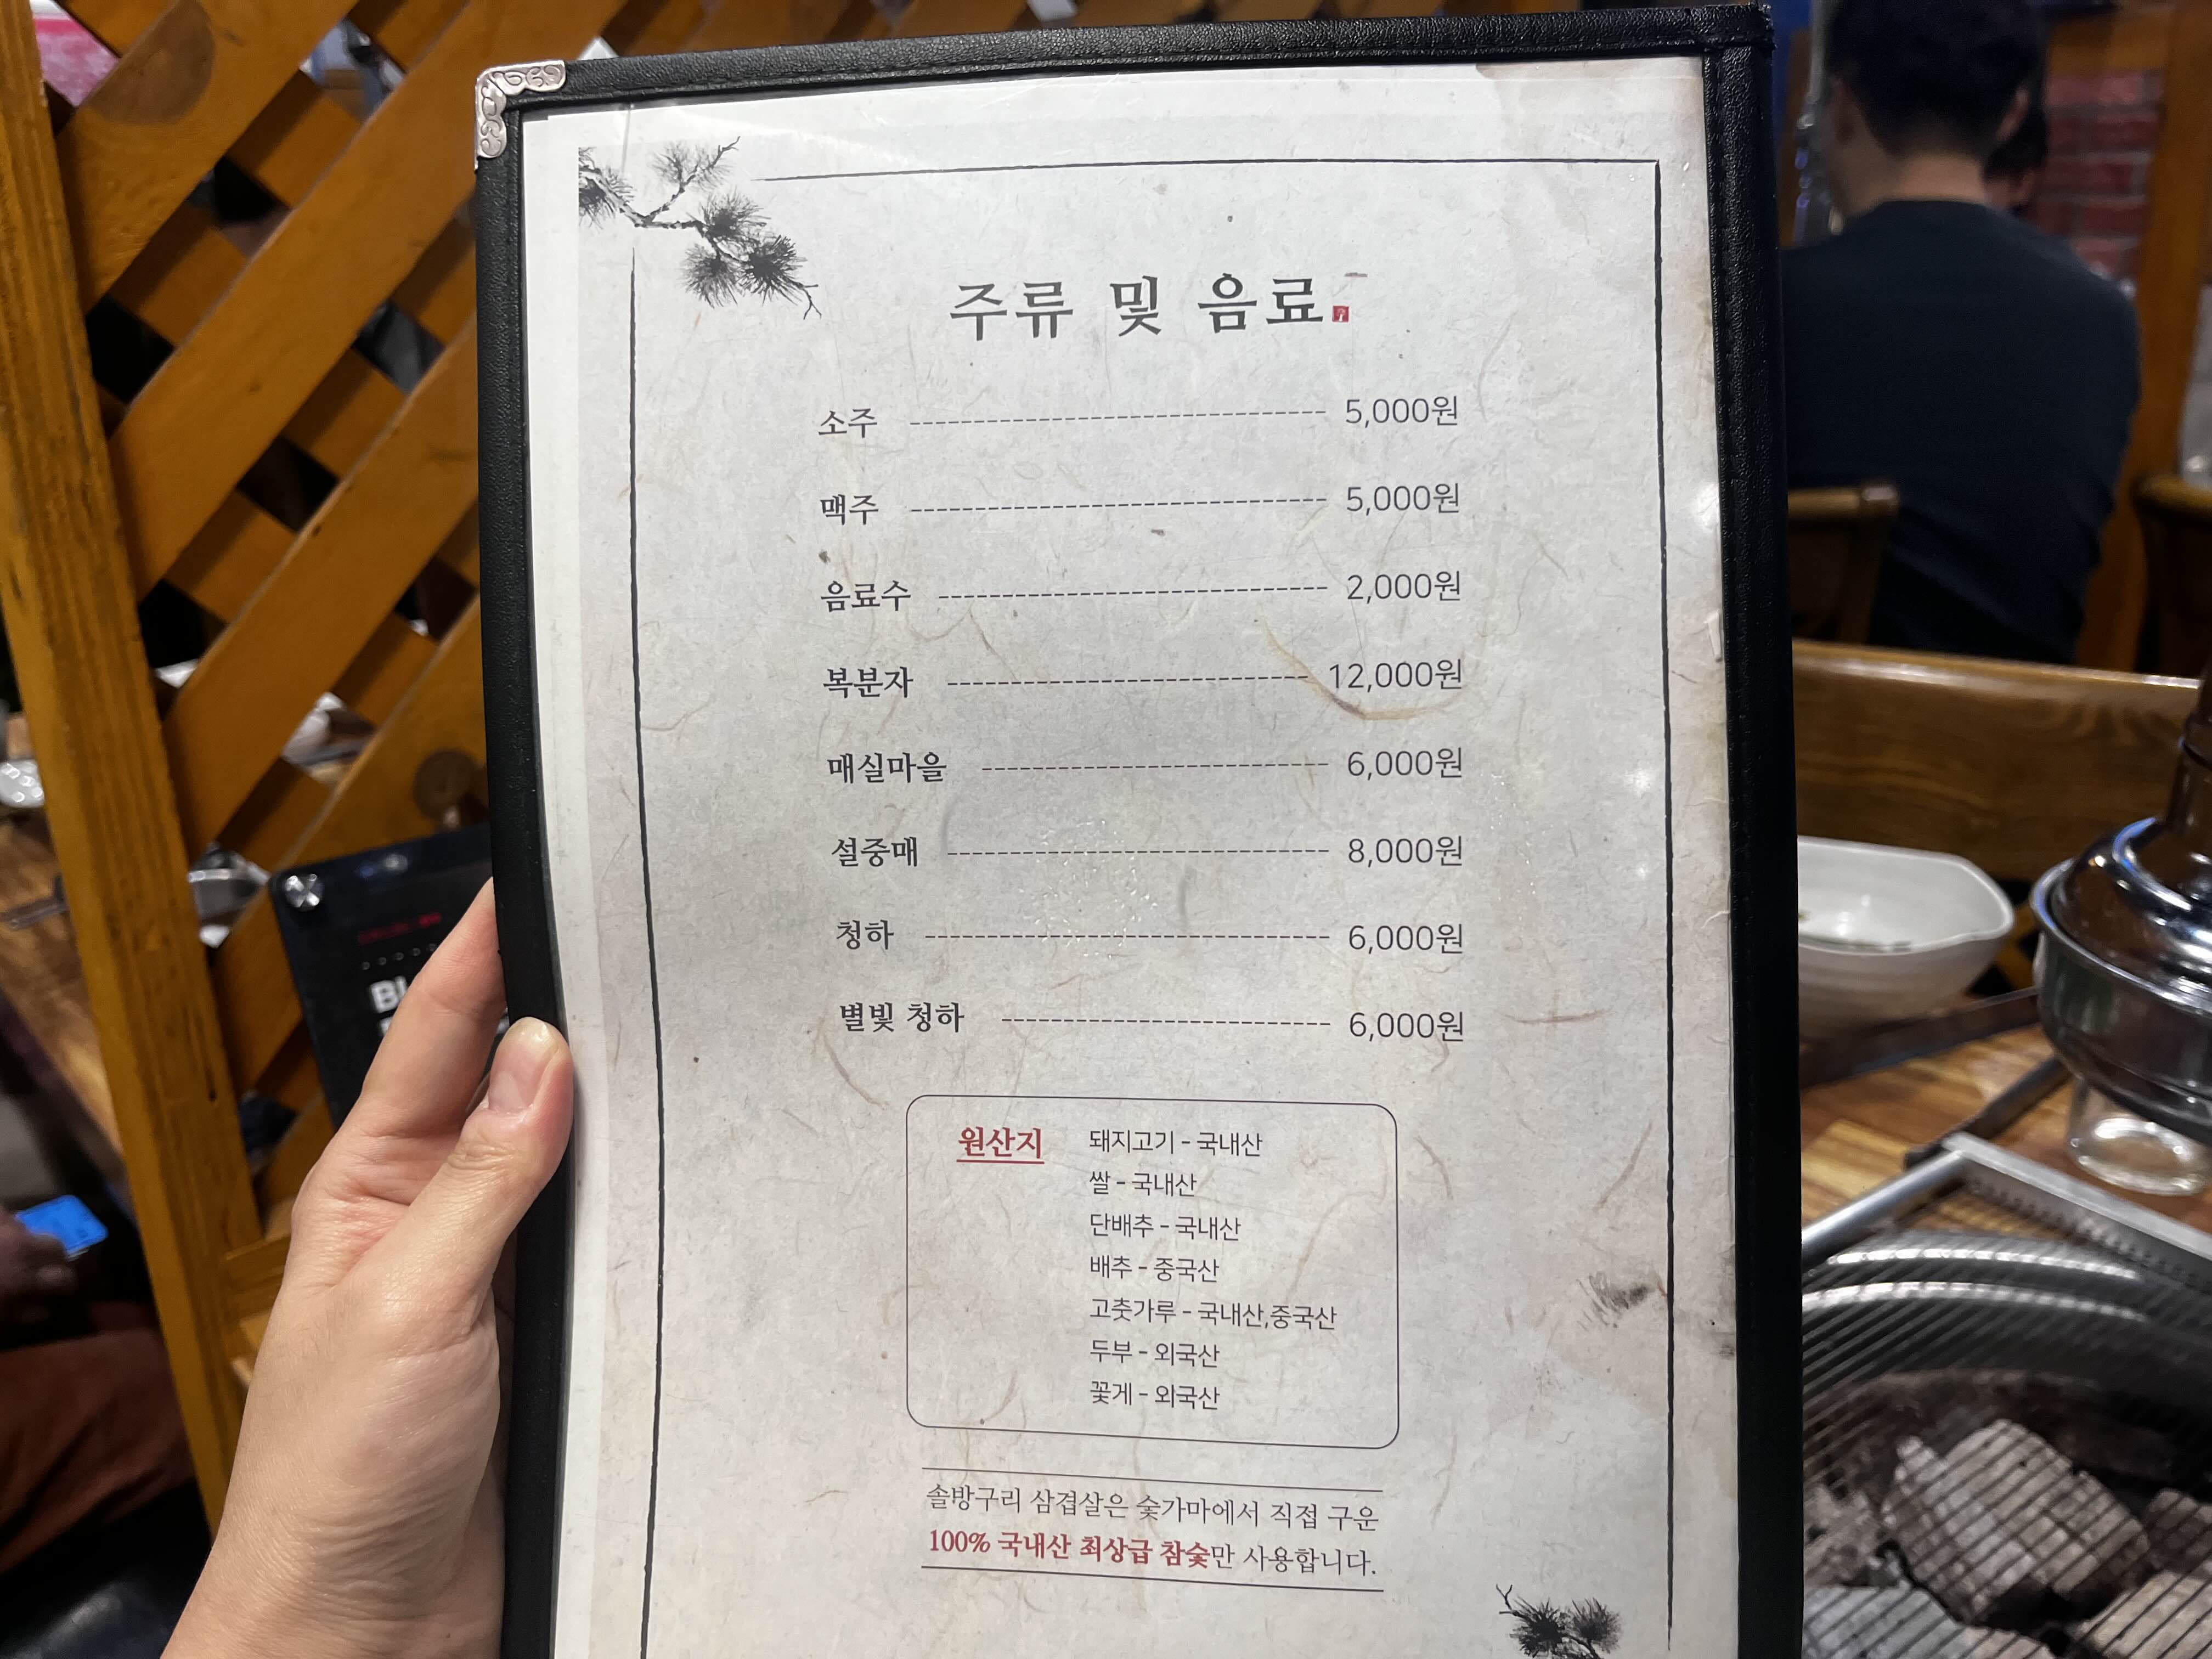 주류 및 음료
소주 5,000원
맥주 5,000원
음료수 2,000원
복분자 12,000원
매실마을 6,000원
설중매 8,000원
청하 6,000원
별빛 청하 6,000원
원산지
돼지고기 - 국내산
쌀 - 국내산
단배추 - 국내산
배추 - 중국산
고춧가루 - 국내산,중국산
두부 - 외국산
꽃게 - 외국산
솔방구리 삼겹살은 숯가마에서 직접 구운
100% 국내산 최상급 참숯만 사용합니다.